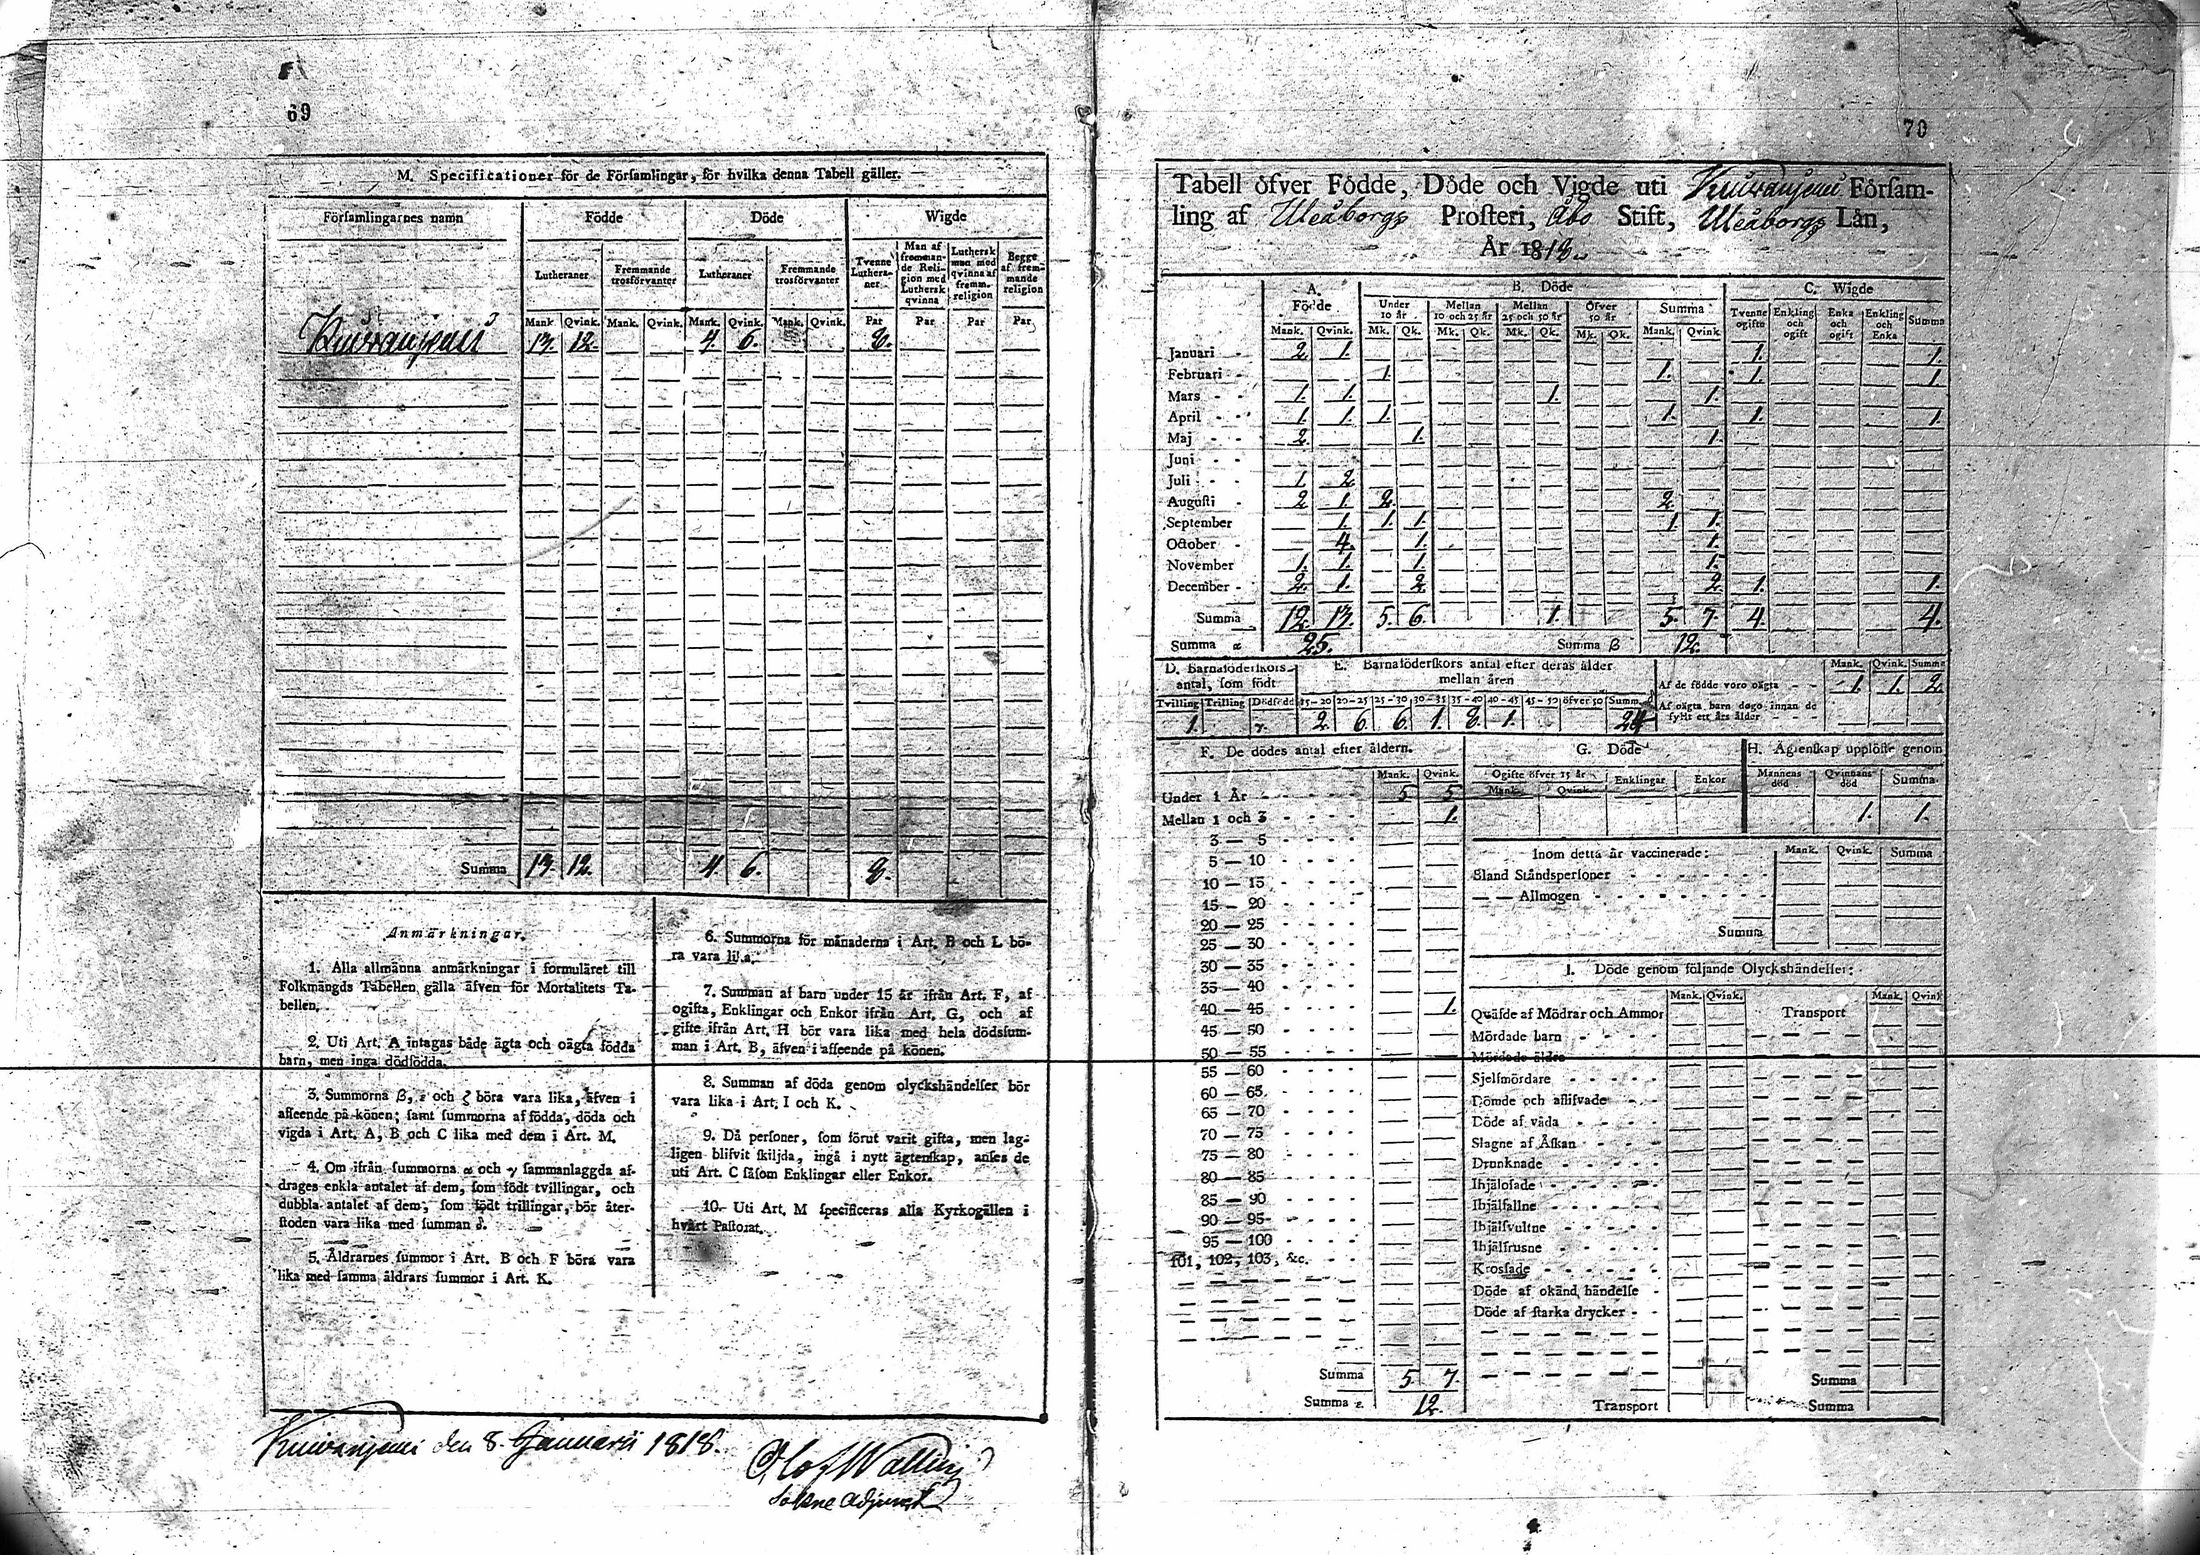 69
M. Specificationer för de Förſamlingar, för hvilka denna Tabell gäller.
Förſamlingarnes namn Födde Döde Wigde
Lutheraner Fremmande trosförvanter Lutheraner Fremmande trosförvanter Tvenne Lutheraner Man af fremmande Religion med Lutherſk qvinna Lutherſk man med qvinna af fremm. religion Begge af fremmande religion
Mank. Qvink. Mank. Qvink. Mank. Qvink. Mank. Qvink. Par Par Par Par
Kuivaniemi 13. 12. 4 6. 8.
Summa 13. 12. 4 6. 8.
Anmärkningar.
1. Alla allmänna anmärkningar i formuläret till
Folkmängds Tabellen gälla äfven för Mortalitets Ta-
bellen.
2. Uti Art. A intagas både ägta och oägta födda
barn, men inga dödfödda.
3. Summorna β, ε och ζ böra vara lika, äfven i
afſeende på könen; ſamt ſummorna af födda, döda och
vigda i Art. A, B och C lika med dem i Art. M.
4. Om ifrån ſummorna α och γ ſammanlaggda af-
drages enkla antalet af dem, ſom födt tvillingar, och
dubbla antalet af dem, ſom födt trillingar, bör åter-
ſtoden vara lika med ſumman δ.
5. Åldrarnes ſummor i Art. B och F böra vara
lika med ſamma åldrars ſummor i Art. K.
6. Summorna för månaderna i Art. B och L bö-
ra vara lika.
7. Summan af barn under 15 år ifrån Art. F, af
ogifta, Enklingar och Enkor ifrån Art. G, och af
gifte ifrån Art. H bör vara lika med hela dödsſum-
man i Art. B, äfven i afſeende på könen.
8. Summan af döda genom olyckshändelſer bör
vara lika i Art. I och K.
9. Då perſoner, ſom förut varit gifta, men lag-
ligen blifvit ſkiljda, ingå i nytt ägtenſkap, anſes de
uti Art. C ſåſom Enklingar eller Enkor.
10. Uti Art. M ſpecificeras alla Kyrkogällen i
hvart Paſtorat.
Kuivaniemi den 8. Januarii 1818.
Olof Wallin
Sokne Adjunct
70
Tabell öfver Födde, Döde och Vigde uti Kuivaniemi Förſam-
ling af Uleåborgs Proſteri, Åbo Stift, Uleåborgs Län,
År 1818.
A. Födde B. Döde C. Wigde
Under 10 år Mellan 10 och 25 år Mellan 25 och 50 år Öfver 50 år Summa Tvenne ogifte Enkling och ogift Enka och ogift Enkling och Enka Summa
Mank. Qvink. Mk. Qk. Mk. Qk. Mk. Qk. Mk. Qk. Mank. Qvink
Januari 2. 1. 1. 1.
Februari 1. 1. 1. 1
Mars 1. 1. 1. 1.
April 1. 1. 1. 1. 1. 1.
Maj 2. 1. 1.
Juni
Juli 1. 2.
Auguſti 2. 1. 2. 2.
September 1. 1. 1. 1. 1.
October 4. 1. 1.
November 1. 1. 1. 1.
December 2. 1. 2. 2. 1. 1.
Summa 12. 13. 5. 6. 1. 5. 7. 4. 4.
Summa α 25. Summa β 12.
D. Barnaföderſkors antal, ſom födt
Tvilling Trilling Dödfödd
1.
E. Barnaföderſkors antal efter deras ålder mellan åren
15-20 20-25 25-30 30-35 35-40 40-45 45-50 öfver 50 Summa
2. 6. 6. 1. 8. 1. 24
Mank. Qvink. Summa
Af de födde voro oägta 1. 1. 2.
Af oägta barn dogo innan de
fyllt ett års ålder
F. De dödes antal efter åldern.
Mank. Qvink.
Under 1 År 5 5
Mellan 1 och 3 1.
3 — 5
5 — 10
10 — 15
15 — 20
20 — 25
25 — 30
30 — 35
35 — 40
40 — 45 1.
45 — 50
50 — 55
55 — 60
60 — 65
65 — 70
70 — 75
75 — 80
80 — 85
85 — 90
90 — 95
95 — 100
101, 102, 103, &c.
Summa 5. 7.
Summa ε. 12.
G. Döde
Ogifte öfver 15 år Enklingar Enkor
Mank. Qvink.
H. Ägtenſkap upplöſte genom
Mannens död Qvinnans död Summa
1. 1.
Inom detta år vaccinerade: Mank. Qvink. Summa
Bland Ståndsperſoner
— — Allmogen
Summa
I. Döde genom följande Olyckshändelſer:
Mank. Qvink. Mank. Qvink
Quäfde af Mödrar och Ammor Transport
Mördade barn
Mördade äldre
Sjelfmördare
Dömde och aflifvade
Döde af våda
Slagne af Åſkan
Drunknade
Ihjälosade
Ihjälfallne
Ihjälſvultne
Ihjälfrusne
Kroſsade
Döde af okänd händelſe
Döde af ſtarka drycker
Summa
Transport Summa